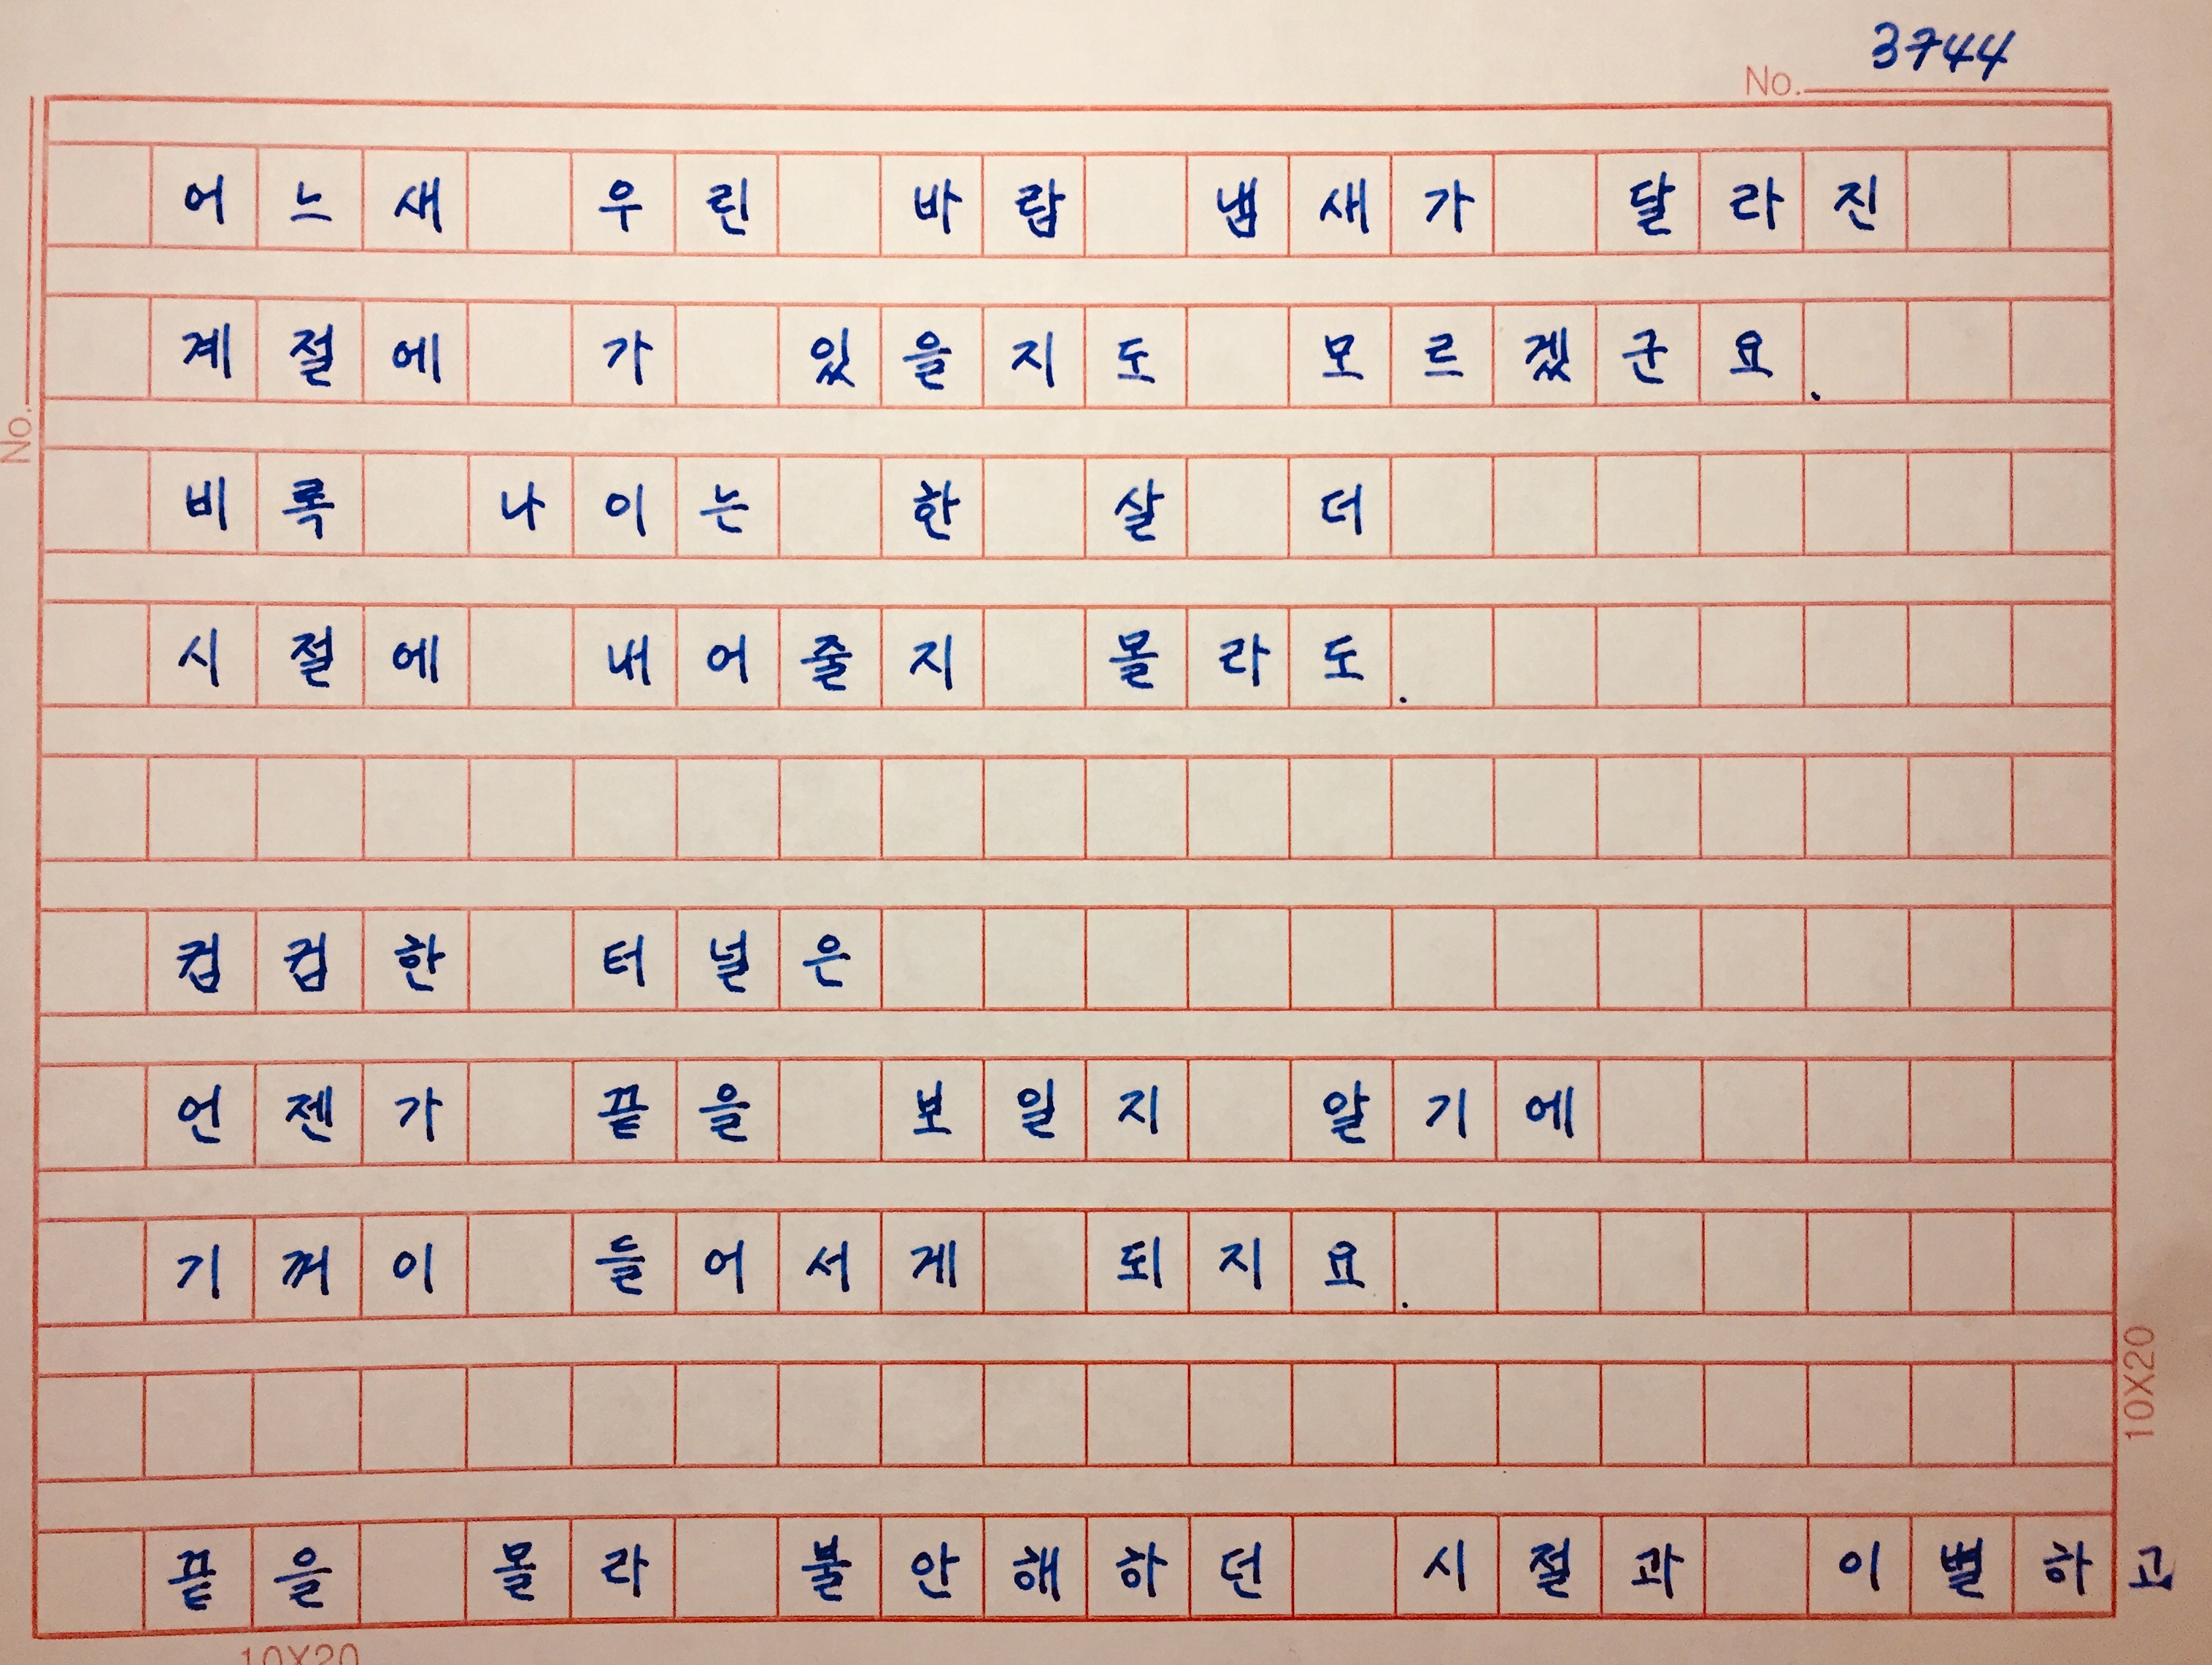 3744
No.
No.
어느새 우린 바람 냄새가 달라진
계절에 가 있을지도 모르겠군요.
비록 나이는 한 살 더
시절에 내어줄지 몰라도.
컴컴한 터널은
언젠가 끝을 보일지 알기에
기꺼이 들어서게 되지요.
끝을 몰라 불안해하던 시절과 이별하고
10X20
10X20